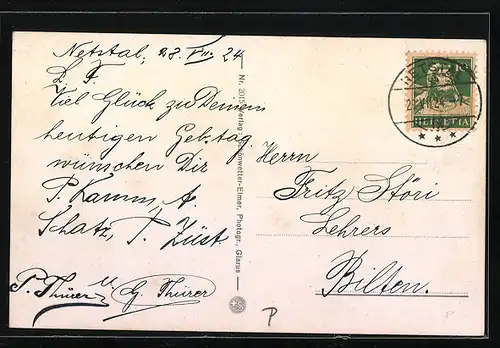 Netstal, 28. VII. 24
L. F.
Viel Glück zu Deinem
heutigen Geb.tag
wünschen Dir
P. Kamm, A.
Schatz, P. Züst
P. Thürer u. G. Thürer
Nr. 2015 Verlag: Schönwetter-Elmer, Photogr., Glarus
HELVETIA
Herrn
Fritz Störi
Lehrers
Bilten.
P
P